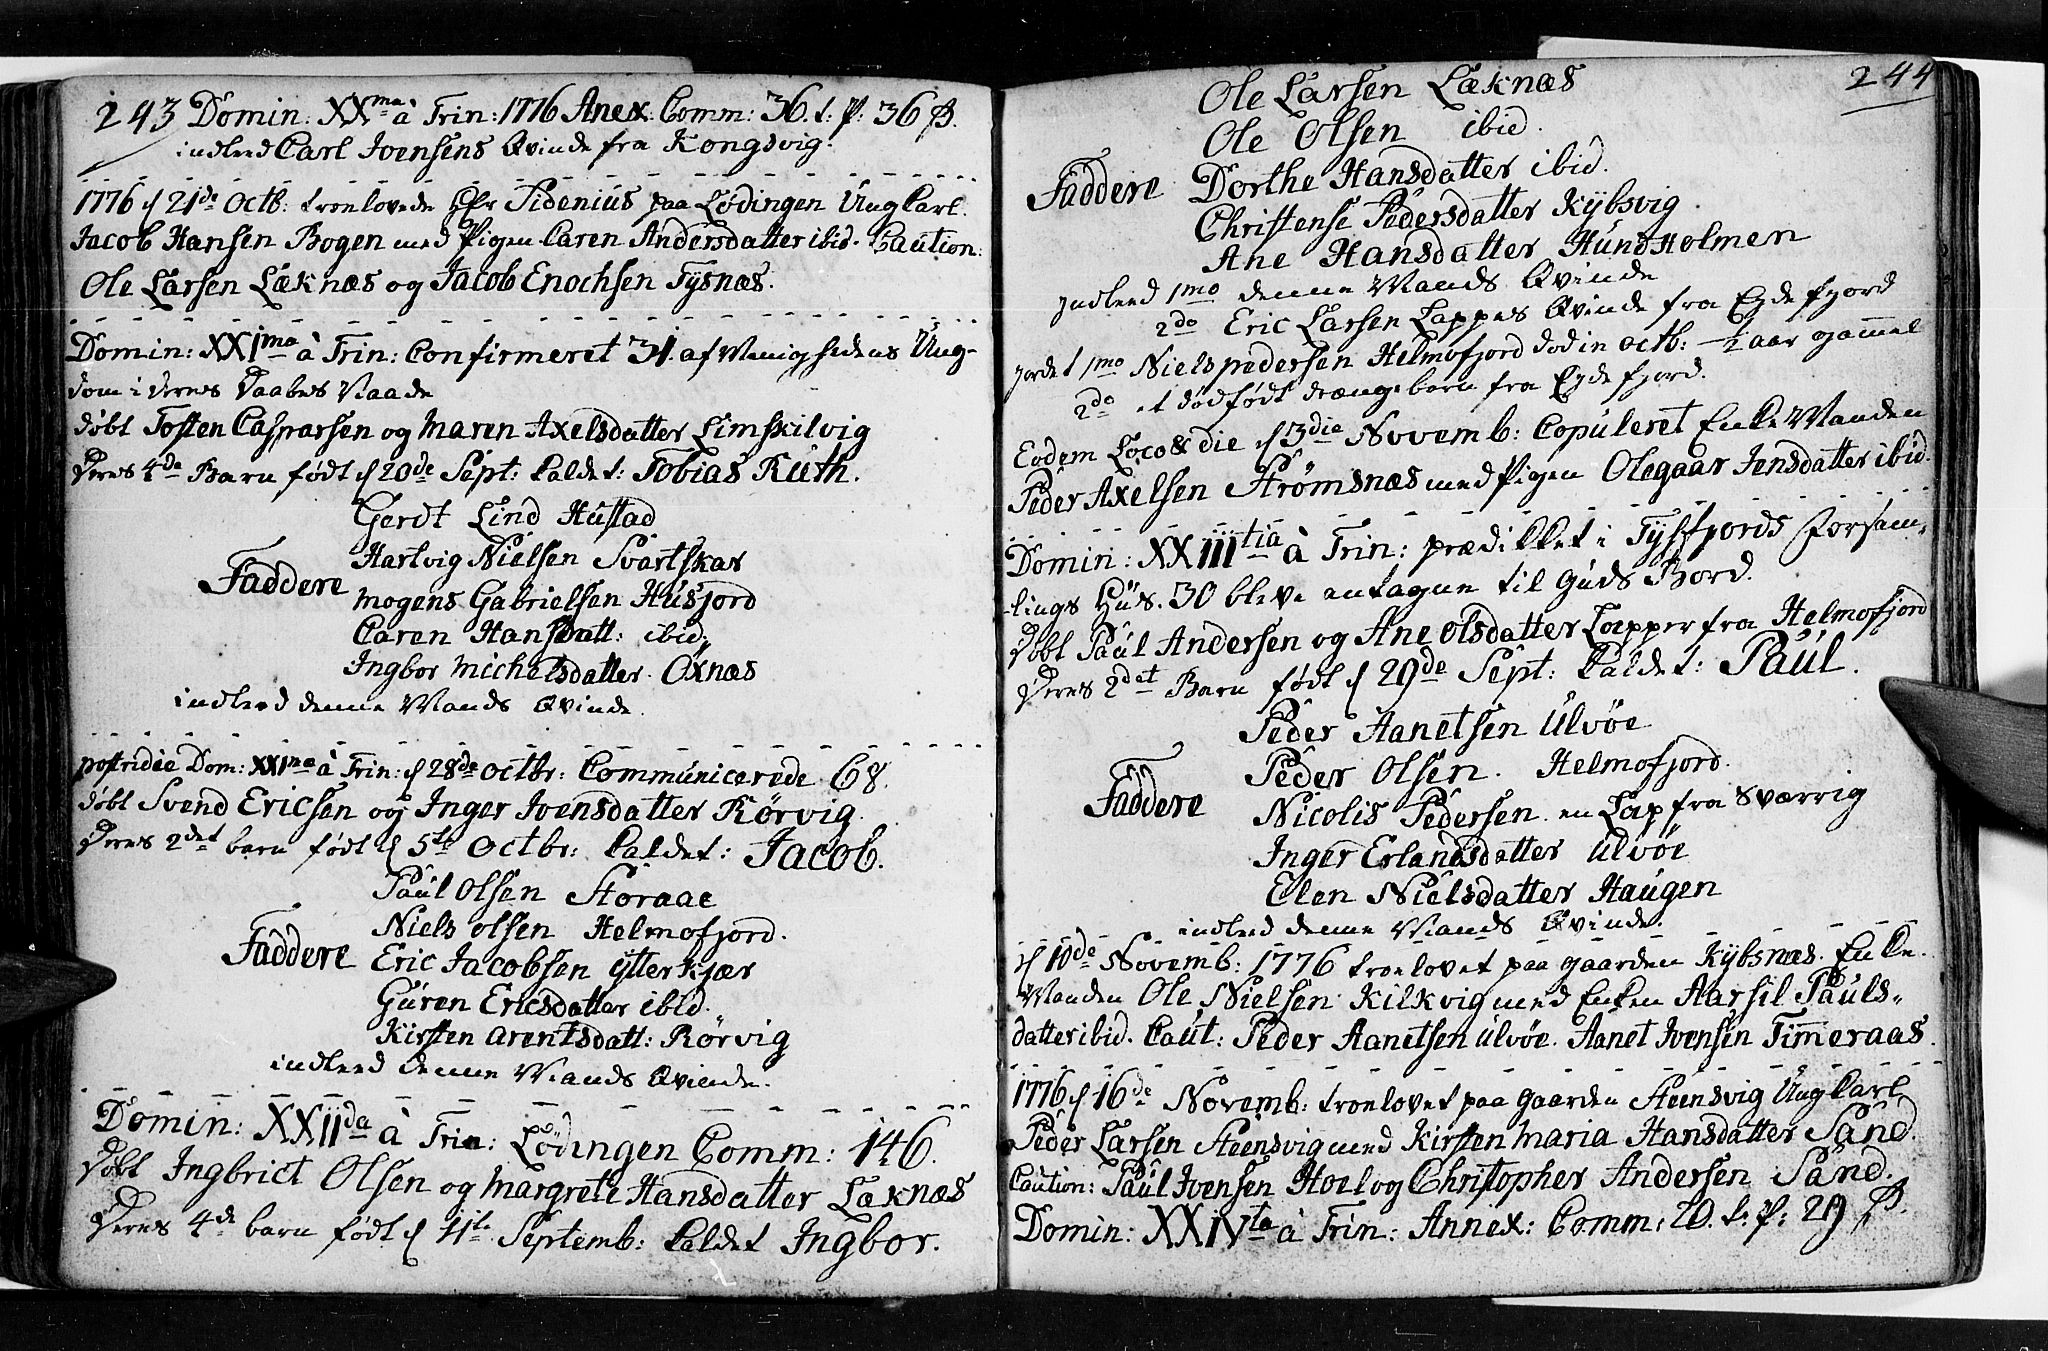 243 Domin: XXma à Trin: 1776 Anex: Comm: 36. t: p: 36 ß.
indleed Carl Ivensens Qvinde fra Kongsvig.
1776 d 21de Octb: troelovede Hr Sidenius paa Lødingen Ungkarl.
Jacob Hansen Bogen med Pigen Caren Andersdatter ibid. Caution:
Ole Larsen Læknæs og Jacob Enochsen Tysnæs.
Domin: XXIma à Trin: Confirmeret 31 af Menighedens Ung-
dom i deres Daabes Naade
døbt Tosten Casparsen og Maren Axelsdatter Limskilvig
Deres 4de Barn født d 20de Sept: kaldet: Tobias Ruth.
Gerdt Lind Hustad
Hartvig Nielsen Svartskar
Faddere Mogens Gabrielsen Husjord
Caren Hansdatt: ibid.
Ingbor Michelsdatter Oxnæs
indleed denne Mands Qvinde.
postridie Dom: XXIma à Trin: d 28de Octbr: Communicerede 68.
døbt Svend Ericsen og Inger Ivensdatter Rørvig
Deres 2det barn født d 5te Octbr: kaldet: Jacob.
Paul Olsen Storaae
Niels Olsen Helmofjord.
Faddere Eric Jacobsen ytter Kjær
Guren Ericsdatter ibid.
Kirsten Arentsdatt: Rørvig
indleed denne Mands Qvinde.
Domin: XXIIda à Trin: Lødingen Comm: 146.
Døbt Ingbrict Olsen og Margrete Hansdatter Læknæs
Deres 4de barn født d 11te Septemb: kaldet Ingbor.
244
Ole Larsen Læknæs
Ole Olsen ibid.
Faddere Dorthe Hansdatter ibid.
Christense Pedersdatter Kybsvig
Ane Hansdatter Hundholmen
Indleed 1mo denne Mands Qvinde
2do Eric Larsen Lappes Qvinde fra Egde fjord
Jordet 1mo Niels Pedersen Helmofjord død in Octb: 1/2 aar gammel
2do et dødfødt drænge barn fra Egde fjord.
Eodem Loco & die d 3die Novemb: Copuleret Enke Manden
Peder Axelsen Strømsnæs med Pigen Olegaar Jensdatter ibid.
Domin: XXIIItia à Trin: prædikket i Tysfjords Forsam-
-lings Hus. 30 bleve antagne til Guds Bord.
Døbt Paul Andersen og Ane Olsdatter Lapper fra Helmofjord
Deres 2det Barn født d 29de Sept: kaldet: Paul.
Peder Aanetsen Ulvøe
Peder Olsen. Helmofjord.
Faddere Nicolis Pedersen en Lap fra Sværrig
Inger Erlandsdatter Ulvøe
Elen Nielsdatter Haugen
indleed denne Mands Qvinde.
d 10de Novemb: 1776 troelovet paa gaarden Kybsnæs. Enke-
Manden Ole Nielsen Kilkvig med Enken Aarsil Pauls-
datter ibid. Caut: Peder Aanetsen Ulvøe. Aanet Ivensen Timeraas.
1776 d 16de Novemb: troelovet paa gaarden Steensvig Ungkarl
Peder Larsen Steensvig med Kirsten Maria Hansdatter Sand.
Caution: Paul Ivensen Hoel og Christopher Andersen Sand.
Domin: XXIVta à Trin: Annex: Comm: 20. t: p: 29 ß.